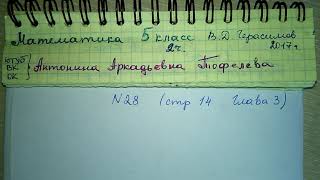 Математика 5 класс В.Д. Герасимов
2ч. 2017г
ютуб
ВК
ОК
Антонина Аркадьевна Тюфелева
N28 (стр 14 Глава 3)